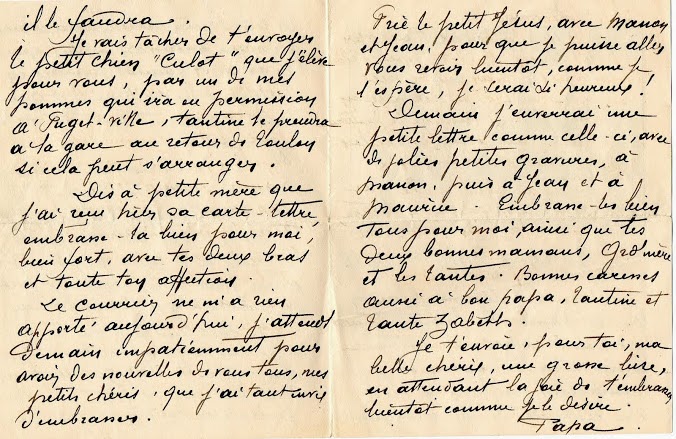 il le faudra.
Je vais tâcher de t'envoyer
le petit chien "Culot" que j'élève
pour vous, par un de mes
hommes qui ira en permission
à Puget-Ville, tantine le prendra
à la gare au retour de Toulon
si cela peut s'arranger.
Dis à petite mère que
j'ai reçu hier sa carte-lettre,
embrasse-la bien pour moi,
bien fort, avec tes deux bras
et toute ton affection.
Le courrier ne m'a rien
apporté aujourd'hui, j'attends
demain impatiemment pour
avoir des nouvelles de vous tous, mes
petits chéris, que j'ai tant envie
d'embrasser.
Prie le petit Jésus, avec Manon
et Jean, pour que je puisse aller
vous revoir bientôt, comme je
l'espère, je serai si heureux!
Demain j'enverrai une
petite lettre comme celle-ci, avec
de jolies petites gravures, à
Manon, puis à Jean et à
Maurice. Embrasse-les bien
tous pour moi, ainsi que tes
deux bonnes mamans, Grd'mère
et les tantes. Bonnes caresses
aussi à bon papa, tantine et
tante Zabeth.
Je t'envoie, pour toi, ma
belle chérie, une grosse bise,
en attendant la joie de t'embrasser
bientôt comme je le désire.
Papa